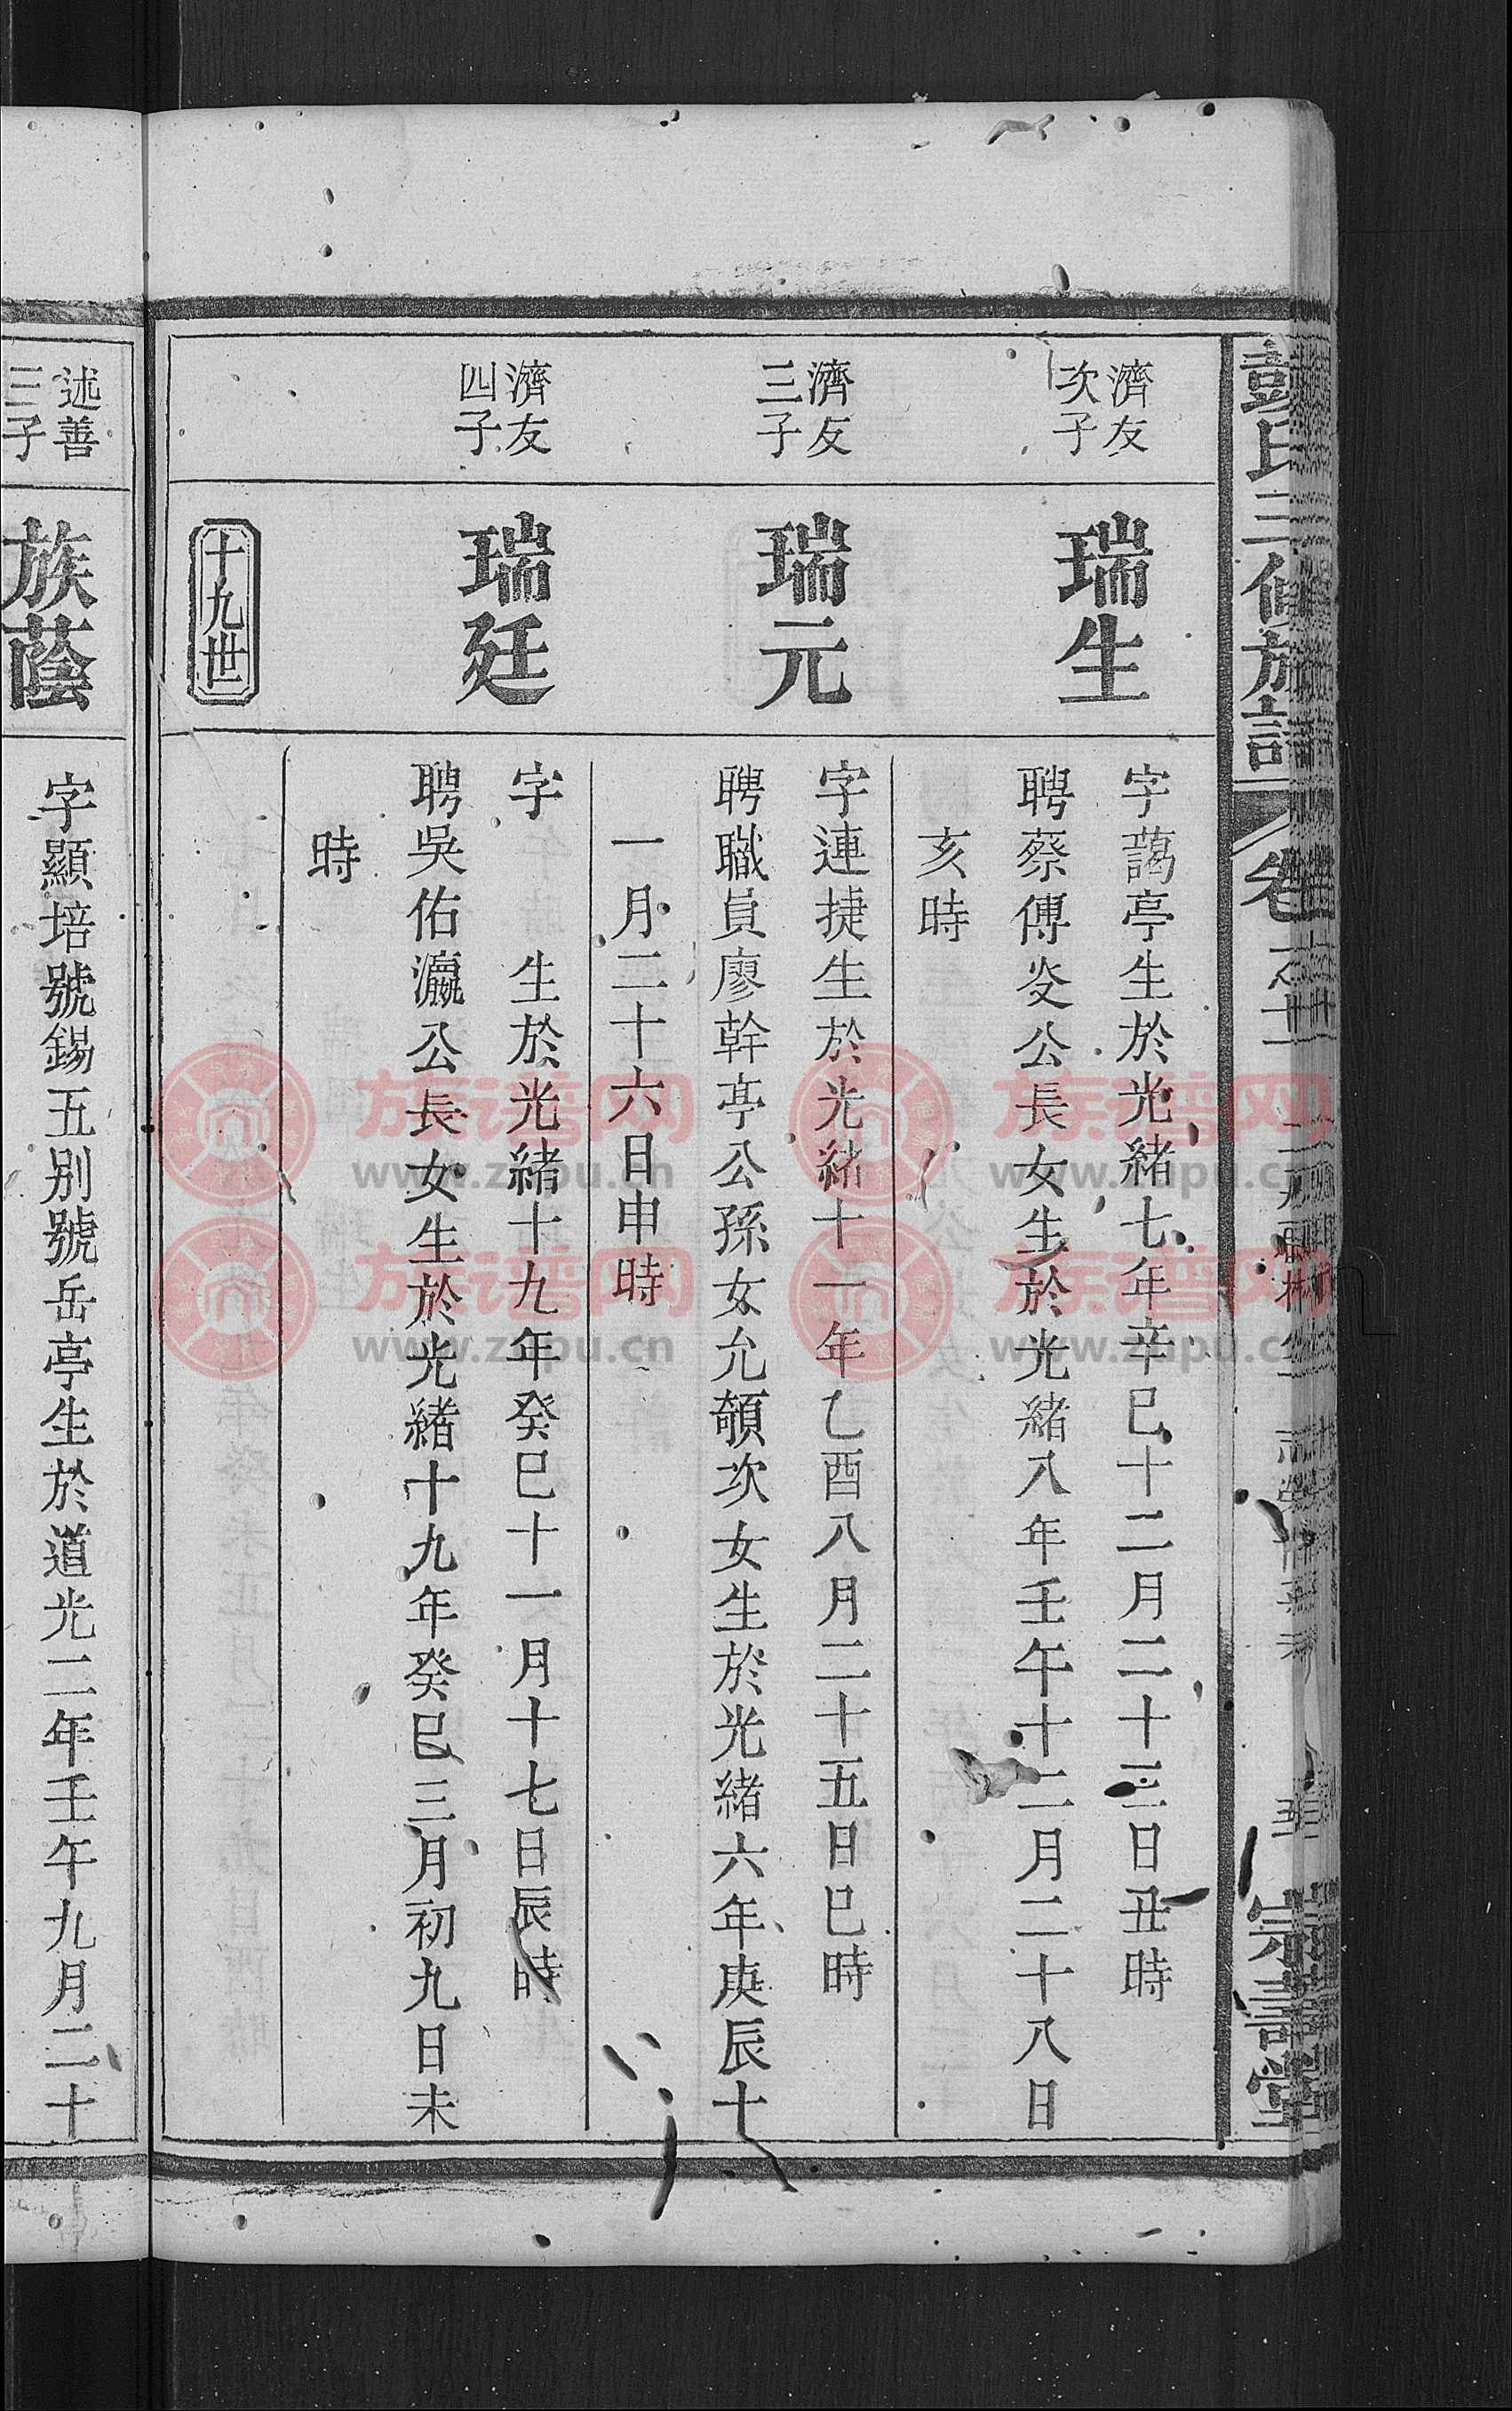 彭氏三修族譜
卷之十一
宗壽堂
濟友
次子
瑞生
字藹亭生於光緒七年辛巳十二月二十三日丑時
聘蔡傅奕公長女生於光緒八年壬午十二月二十八日
亥時
濟友
三子
瑞元
字連捷生於光緒十一年乙酉八月二十五日巳時
聘職員廖幹亭公孫女允頎次女生於光緒六年庚辰十
一月二十六日申時
濟友
四子
瑞廷
字　生於光緒十九年癸巳十一月十七日辰時
聘吳佑瀛公長女生於光緒十九年癸巳三月初九日未
時
十九世
述善
三子
族蔭
字顯培號錫五別號岳亭生於道光二年壬午九月二十
族谱网
www.zupu.cn
族谱网
www.zupu.cn
族谱网
www.zupu.cn
族谱网
www.zupu.cn